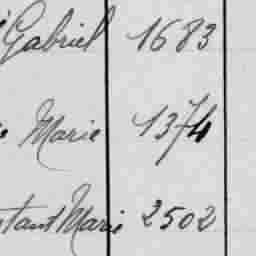 Gabriel 1683
Marie 1374
Marie 2502